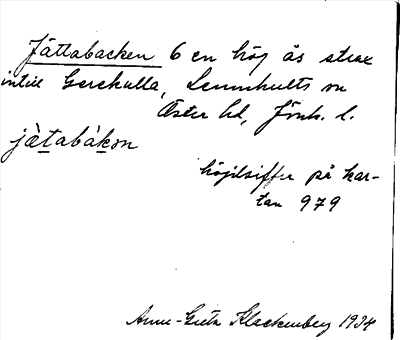 Jättabacken 6 en hög ås strax
intill Gerekulla, Lemnhults sn
Öster hd, Jönk. l.
jä̀tabákon
höjdsiffer på kar-
tan 979
Anna-Greta Klackenberg 1934